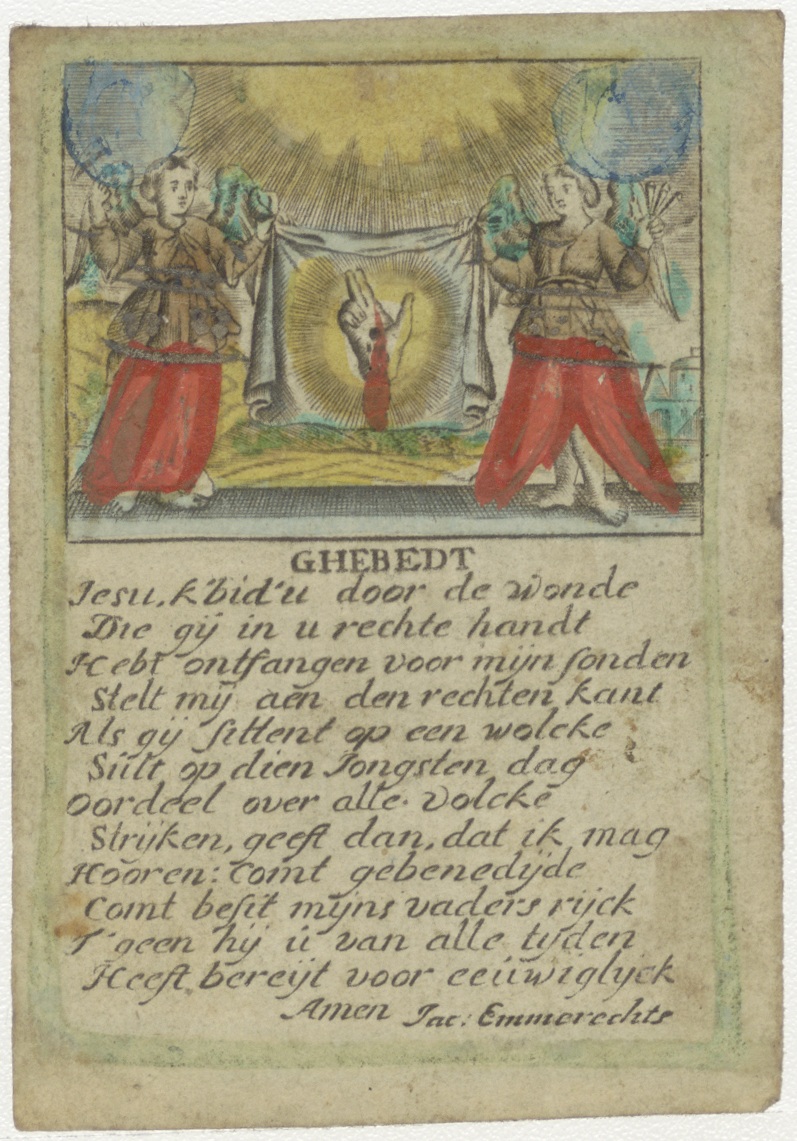 GHEBEDT
Jesu, k'bid'u door de wonde
Die gij in u rechte handt
Hebt ontfangen voor mijn sonden
Stelt mij aen den rechten kant
Als gij sittent op een wolcke
Sült op dien Jongsten dag
Oordeel over alle volcke
Strijken, geeft dan, dat ik mag
Hooren: Comt gebenedijde
Comt besit mijns vaders rijck
T'geen hij ü van alle tyden
Heeft bereijt voor eeüwiglyck
Amen Jac: Emmerechts